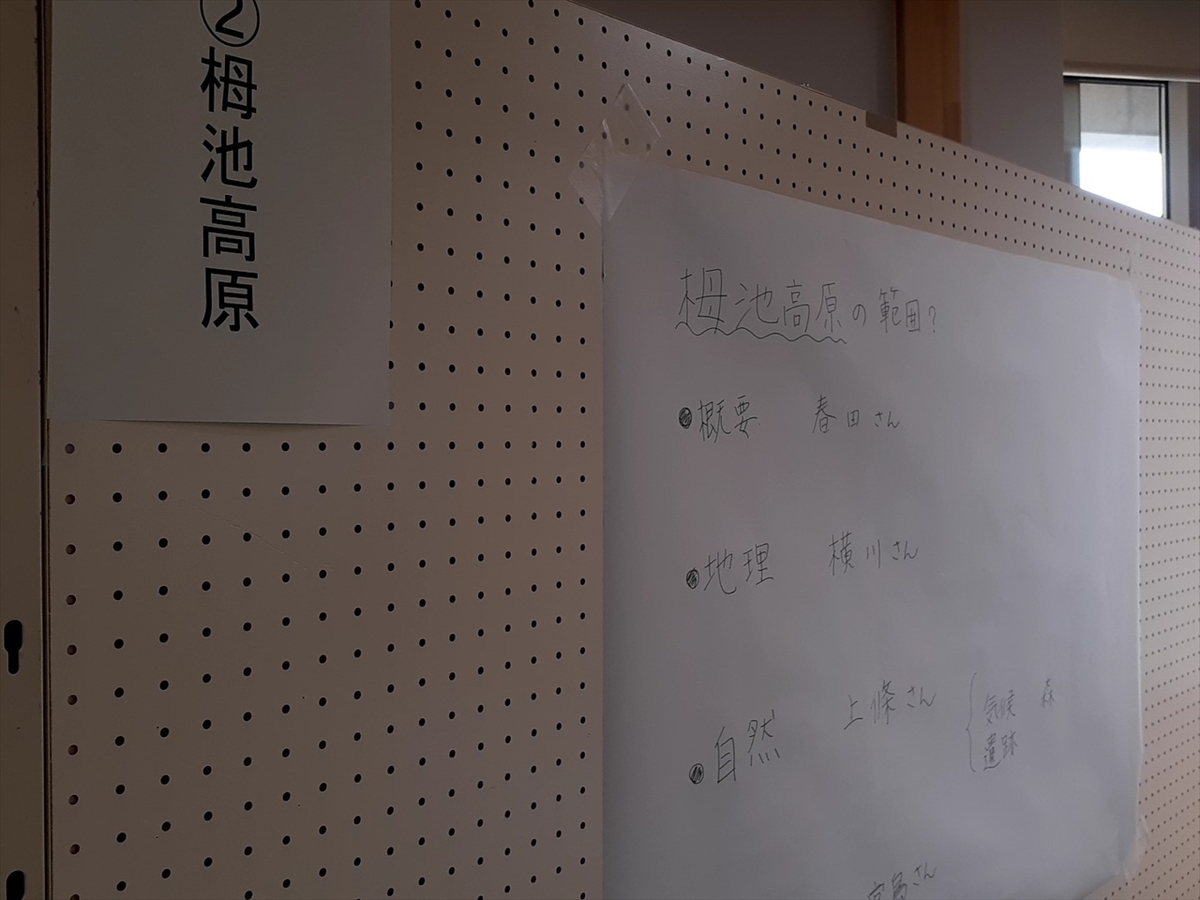 ②栂池高原
栂池高原の範囲?
●概要 春田さん
●地理 横川さん
●自然 上條さん 気候 森
遺跡
さん